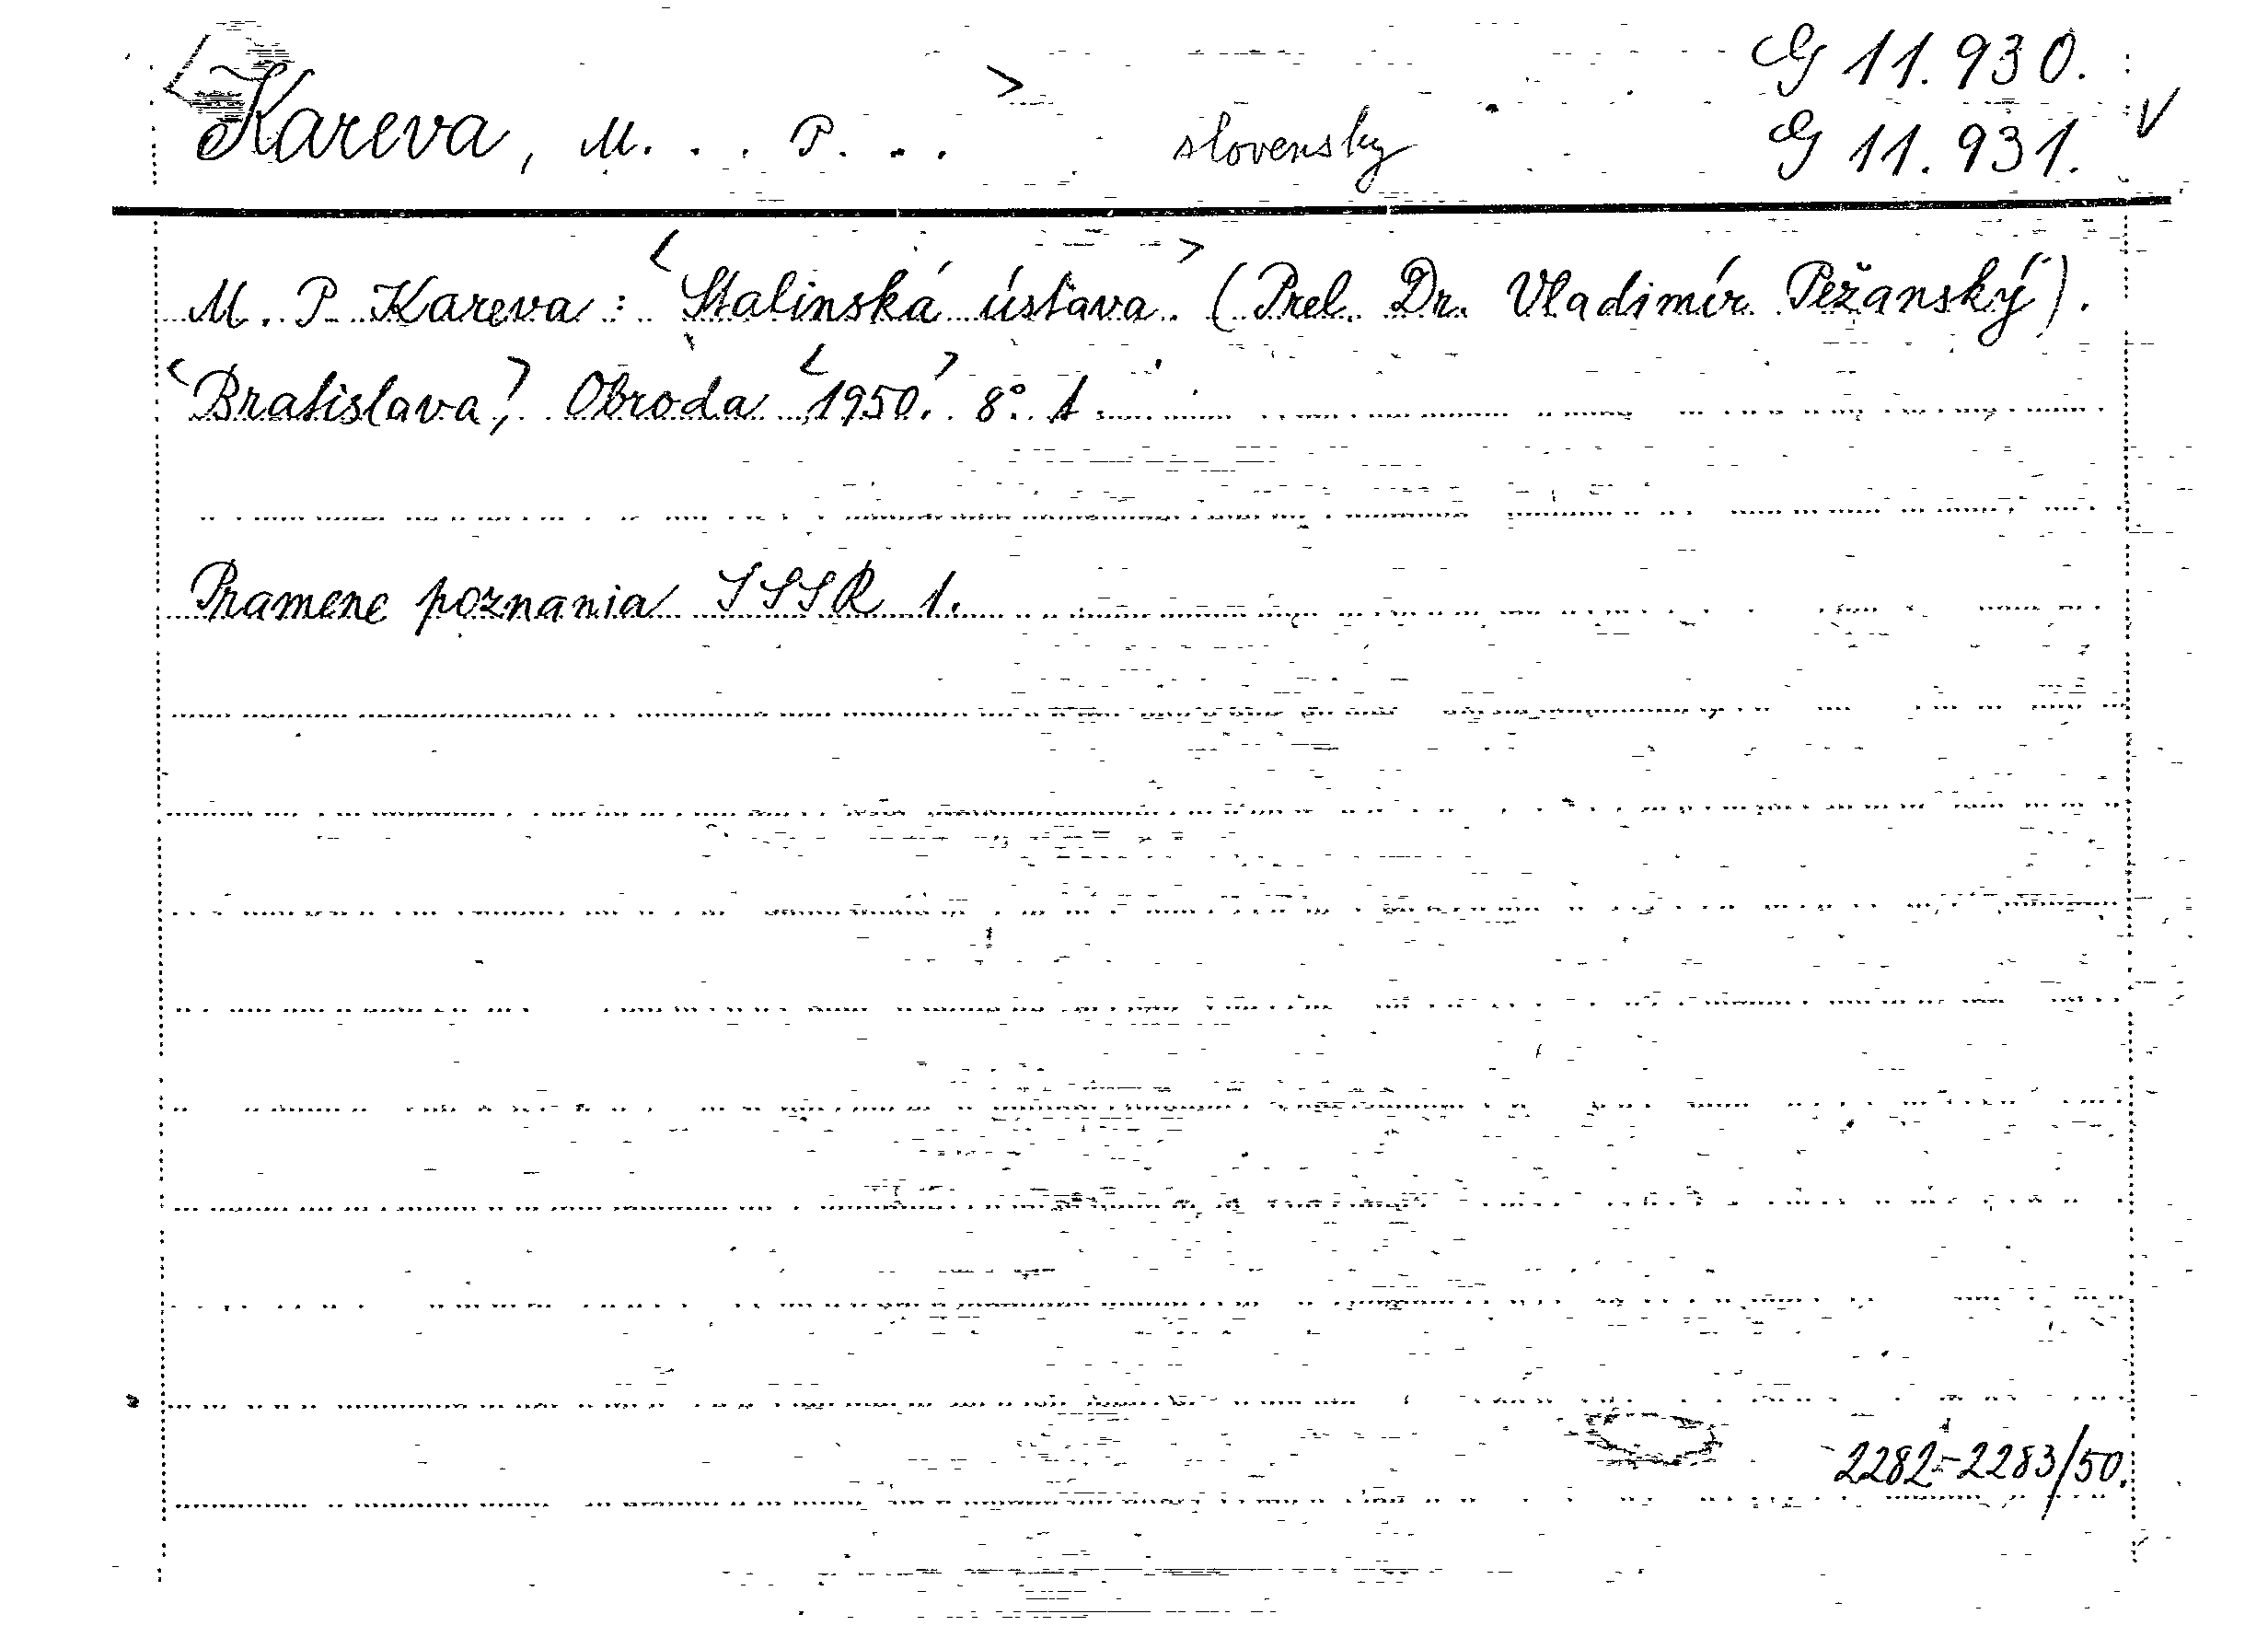 G 11.930.
<Kareva, M... P...> slovensky G 11.931. V
M. P. Kareva: <Stalinská ústava> (Prel. Dr. Vladimír Pěžanský).
<Bratislava,> Obroda <1950.> 8°. 1
Pramene poznania SSSR 1.
2282-2283/50.